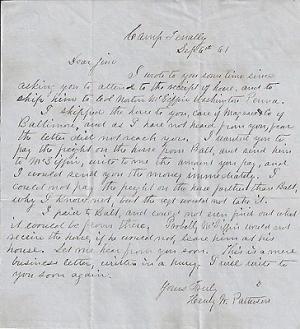 Camp Tenally
Sept 6th 61
Dear Jim
I wrote to you some time since
asking you to attend to the receipt of horse, and to
ship him to Col Norton McGiffin Washington Penna.
I shipped the horse to you, care of Magraw & Co
Baltimore, and as I have not heard from you, fear
the letter did not reach you. I wanted you to
pay the freight on the horse from Balt, and send him
to McGiffin, write to me the amount you pay, and
I would send you the money immediately. I
could not pay the freight on the horse farther than Balt,
why I know not, but the agt would not take it.
I paid to Balt, and could not even find out what
it would be from there. Probably McGiffin would not
receive the horse, if he would not, leave him at his
house. Let me hear from you soon. This is a mere
business letter, written in a hurry. I will write to
you soon again.
Yours truly,
Henry W. Patterson